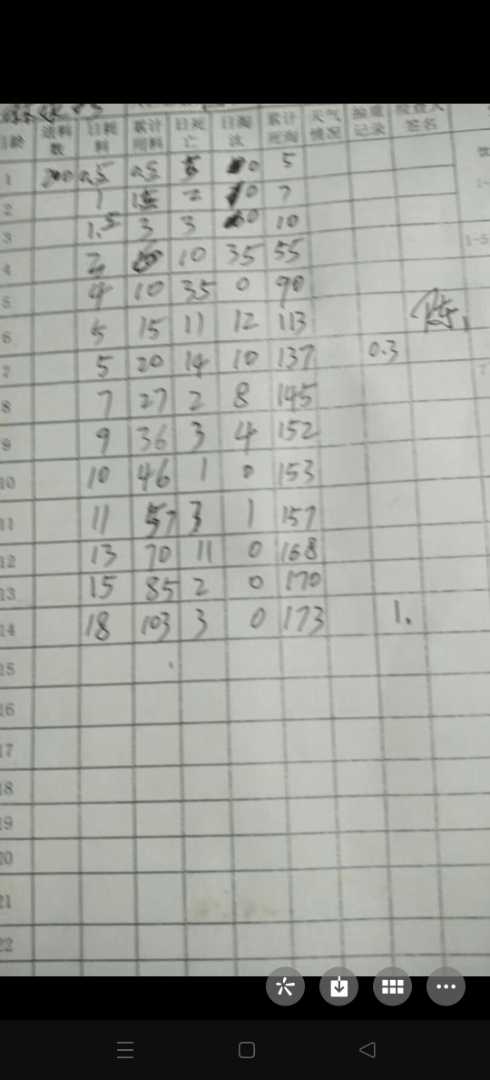 日龄 进料数 日耗料 累计用料 日死亡 日淘汰 累计死淘 天气情况 签名
1 200 0.5 0.5 5 0 5
2 1 2 0 7
3 1.5 3 3 0 10
4 10 35 55
5 4 10 35 0 90
6 5 15 11 12 113
7 5 20 14 10 137 0.3
8 7 27 2 8 145
9 9 36 3 4 152
10 10 46 1 0 153
11 11 57 3 1 157
12 13 70 11 0 168
13 15 85 2 0 170
14 18 103 3 0 173 1.
15
16
17
18
19
20
21
22